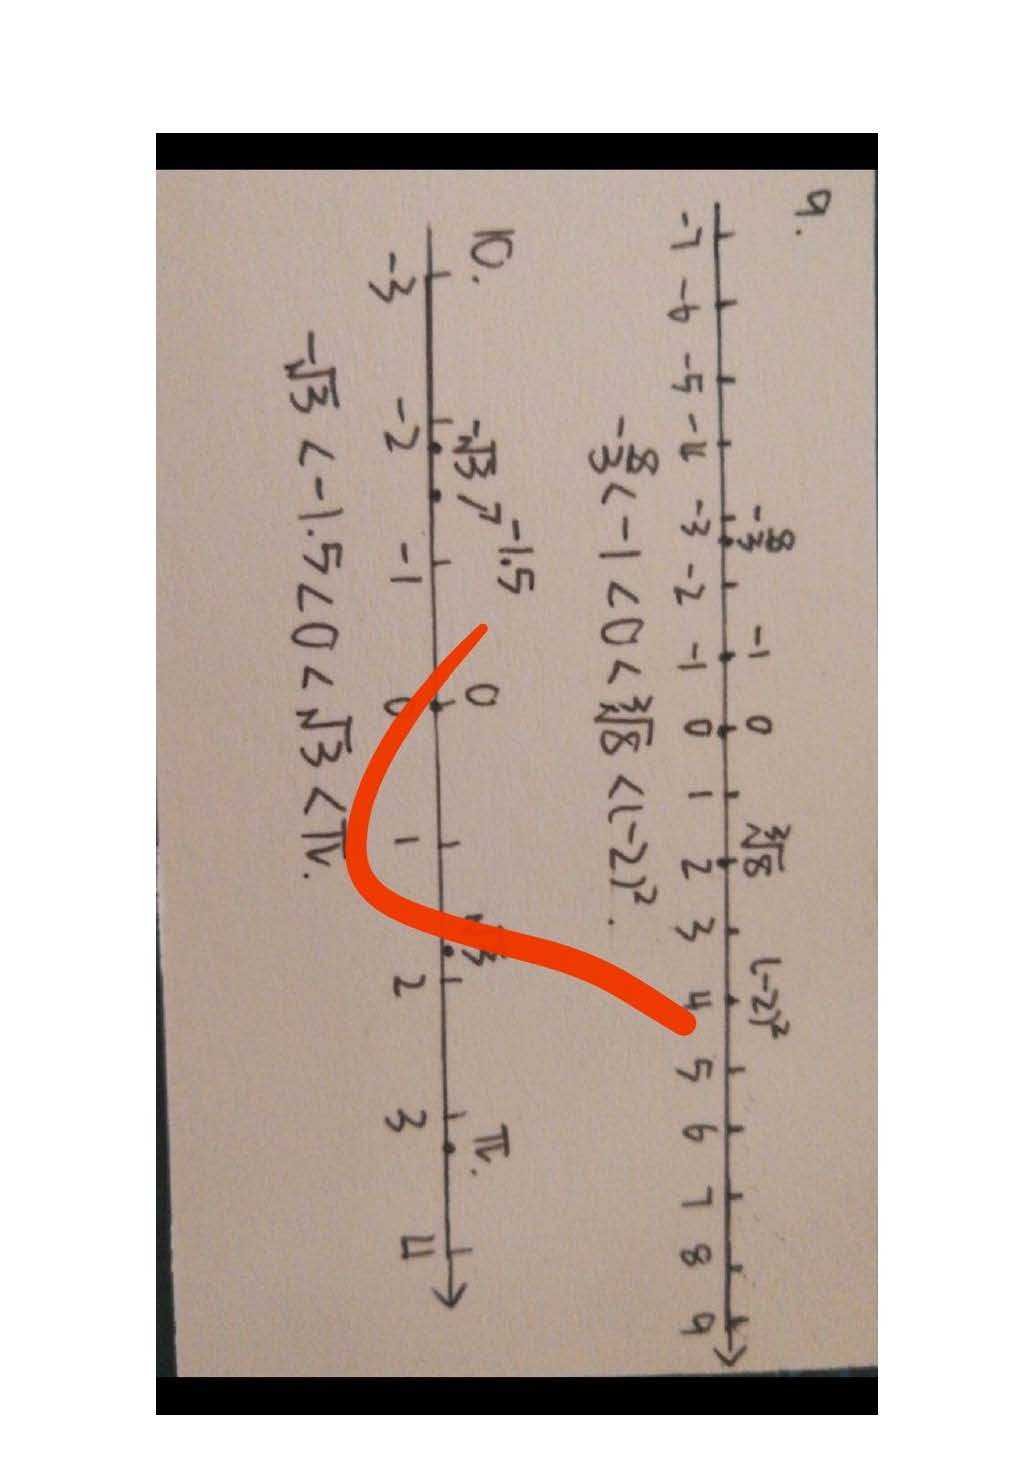 9.
-8/3 -1 0 ∛8 (-2)²
-7 -6 -5 -4 -3 -2 -1 0 1 2 3 4 5 6 7 8 9
-8/3 < -1 < 0 < ∛8 < (-2)².
10.
-√3 -1.5 0 √3 π.
-3 -2 -1 0 1 2 3 4
-√3 < -1.5 < 0 < √3 < π.